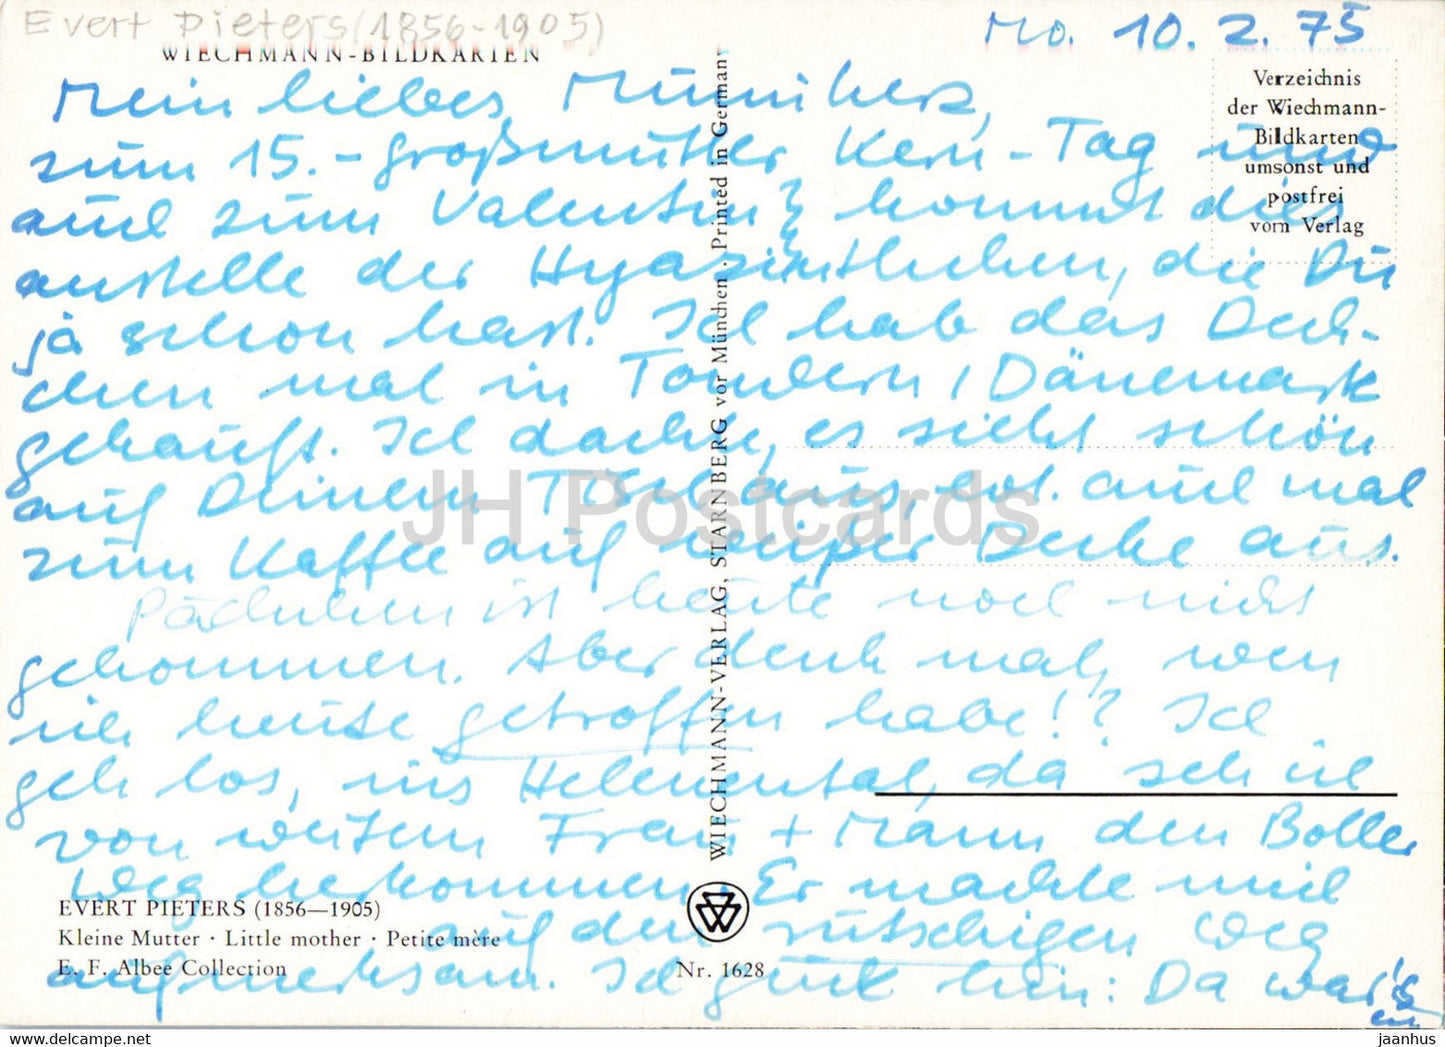 Evert Pieters (1856-1905)
Mo. 10.2.75
WIECHMANN-BILDKARTEN
Verzeichnis
der Wiechmann-
Bildkarten
umsonst und
postfrei
vom Verlag
Mein liebes Mümiherz,
zum 15.-Großmutter Kern-Tag und
auch zum Valentin? kommt dies
anstelle der Hyazinthchen, die Du
ja schon hast. Ich hab das Deck-
chen mal in Tondern, Dänemark
gekauft. Ich dachte, es sieht schön
auf Deinem Tisch aus, evt. auch mal
zum Kaffee auf weißer Decke aus.
Päckchen ist heute noch nicht
gekommen. Aber denk mal, wen
ich heute getroffen habe!? Ich
geh los, ins Helenental, da seh ich
von weitem Frau + Mann den Boller
Weg herkommen. Er machte mich
auf den rutschigen Weg
aufmerksam. Ich guck hin: Da war's
WIECHMANN-VERLAG, STARNBERG vor München · Printed in Germany
EVERT PIETERS (1856—1905)
Kleine Mutter · Little mother · Petite mère
E. F. Albee Collection
Nr. 1628
JH Postcards
jaanhus